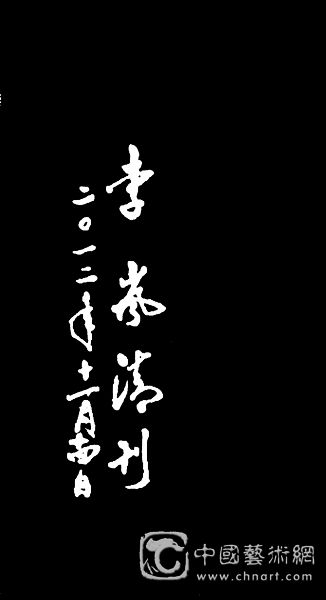 李岚清刊
二〇一二年十一月日
中國藝術網
www.chnart.com